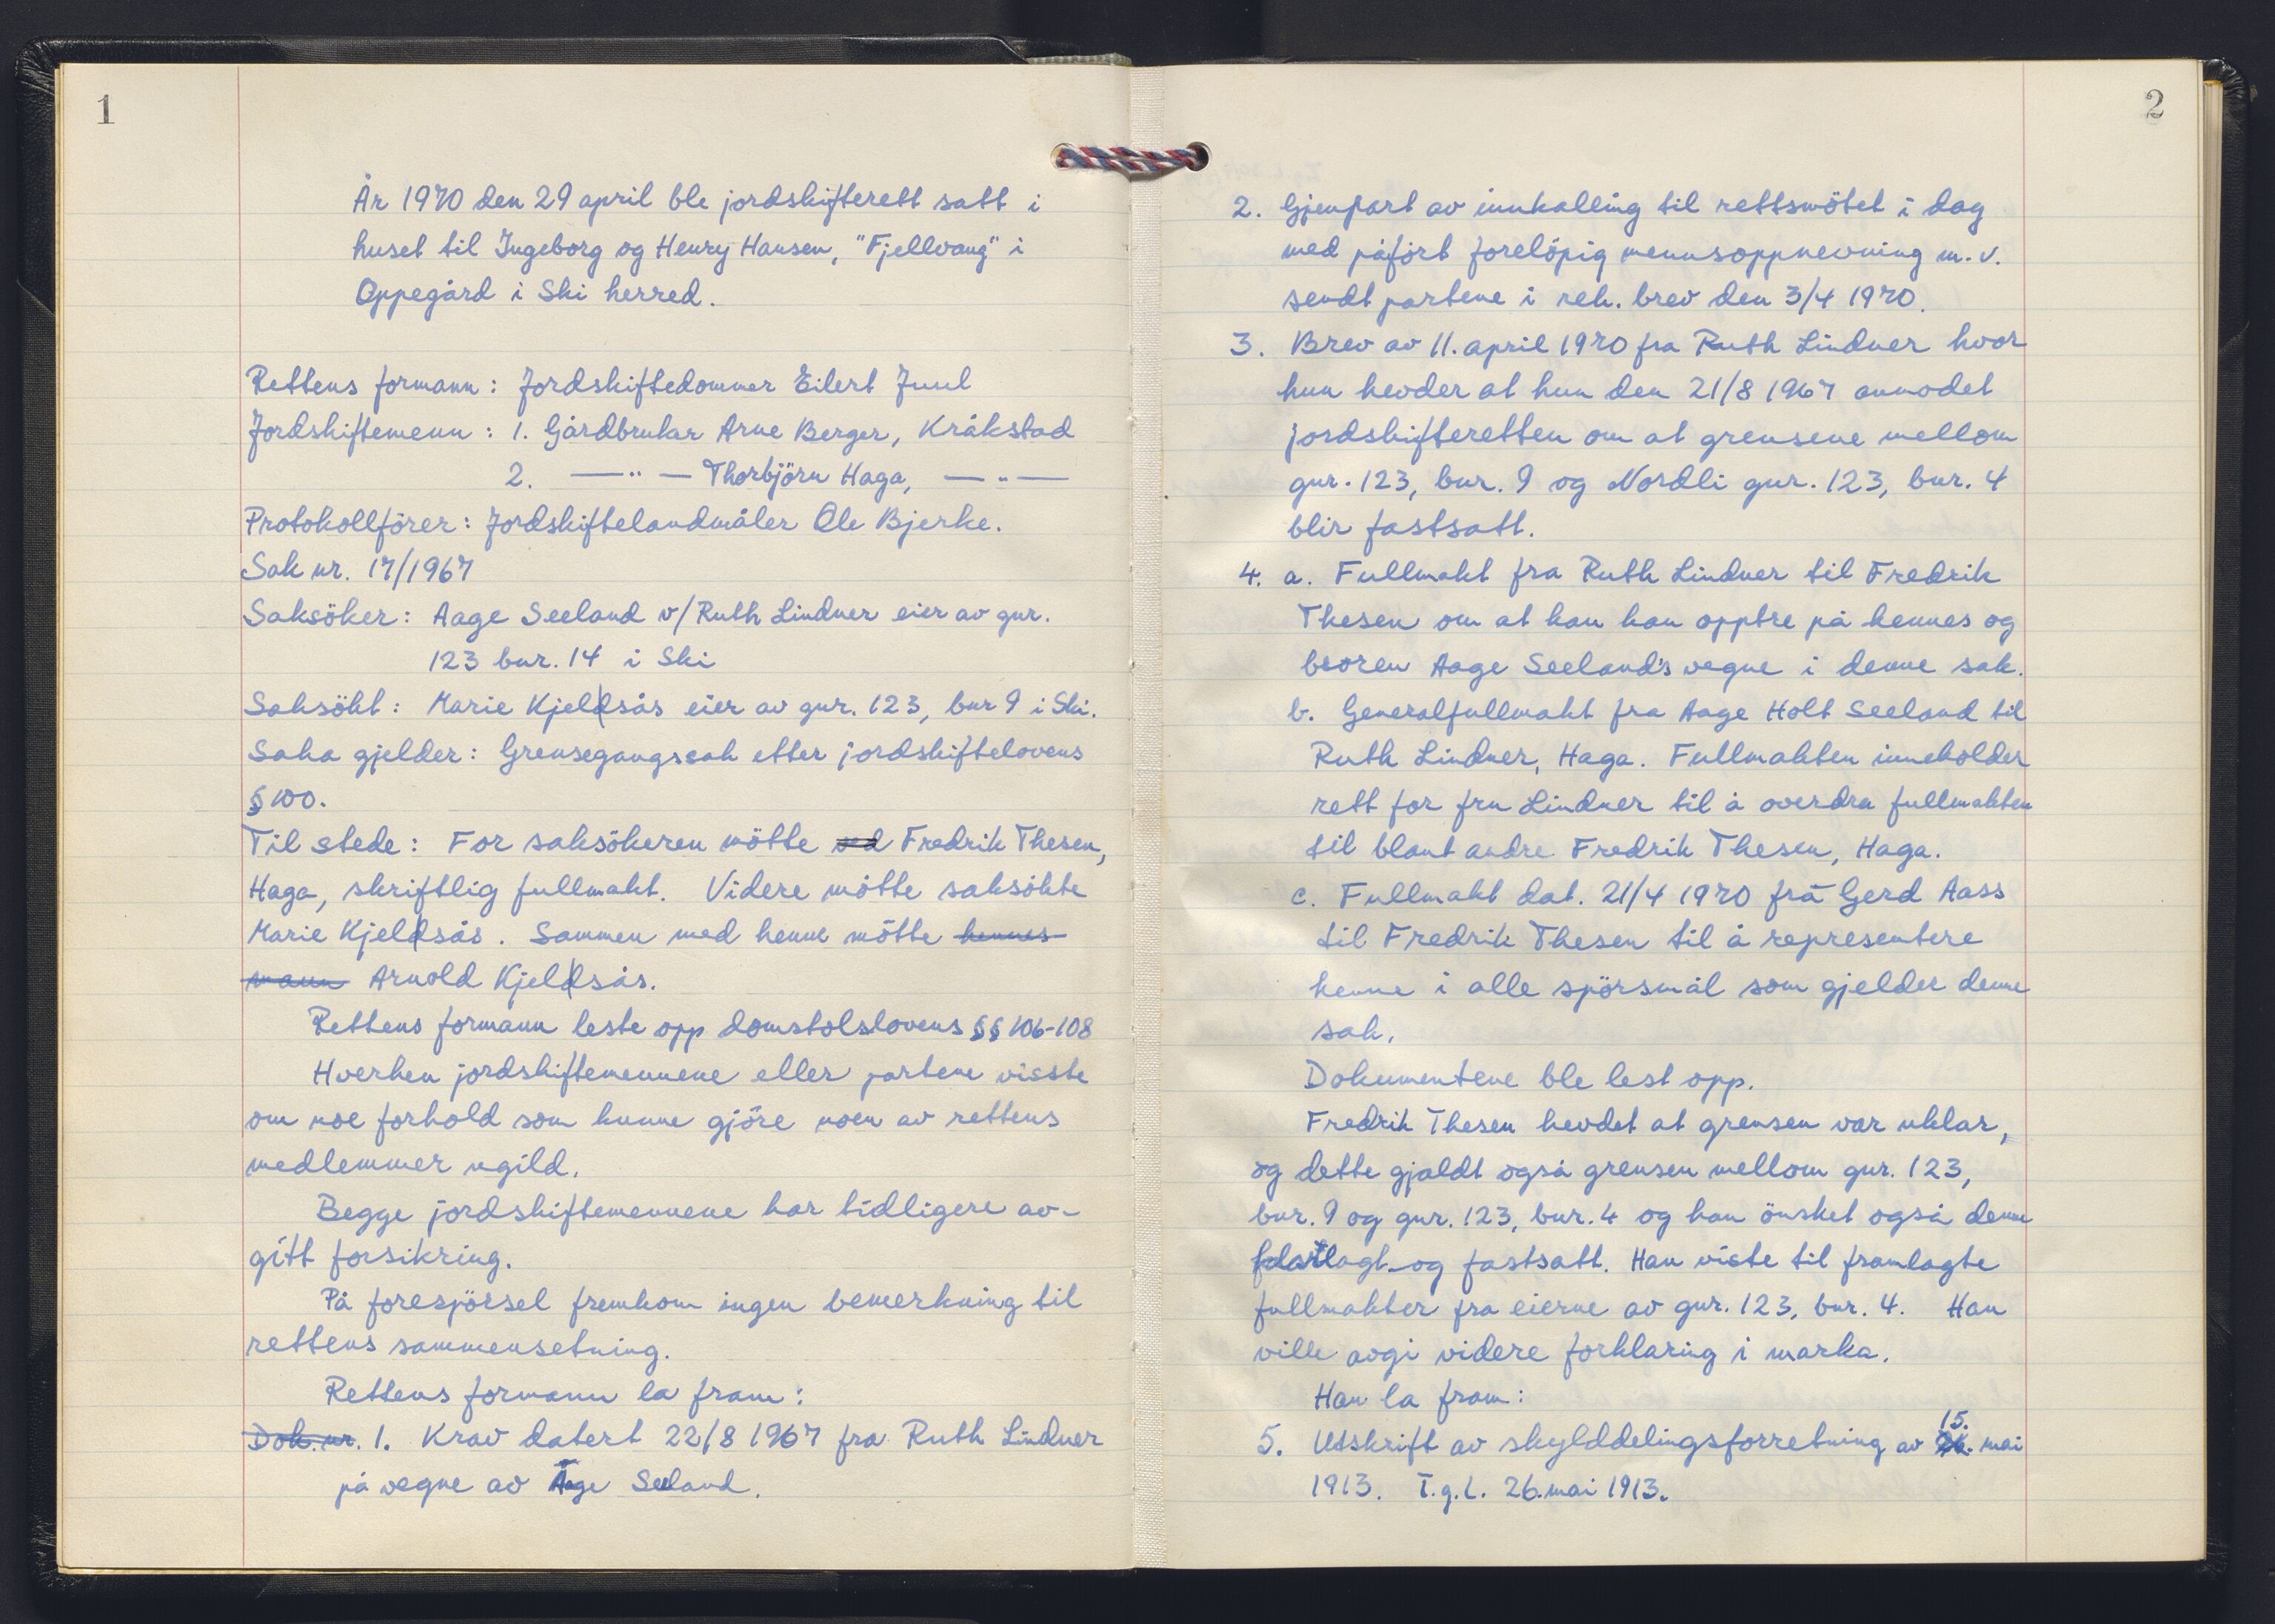 1
År 1970 den 29 april ble jordskifterett satt i
huset til Ingeborg og Henry Hansen, "Fjellvang" i
Oppegård i Ski herred.
Rettens formann: Jordskiftedommer Eilert Juul
Jordskiftemenn: 1. Gårdbruker Arne Berger, Kråkstad
2. —"— Thorbjörn Haga, —"—
Protokollförer: Jordskiftelandmåler Ole Bjerke.
Sak nr. 17/1967
Saksöker: Aage Seeland v/Ruth Lindner eier av gnr.
123 bnr. 14 i Ski
Saksökt: Marie Kjelsås eier av gnr. 123, bnr 9 i Ski.
Saka gjelder: Grensegangssak etter jordskiftelovens
§ 100.
Til stede: For saksökeren mötte ved Fredrik Thesen,
Haga, skriftlig fullmakt. Videre mötte saksökte
Marie Kjelsås. Sammen med henne mötte hennes
mann Arnold Kjelsås.
Rettens formann leste opp domstolslovens §§ 106-108
Hverken jordskiftemennene eller partene visste
om noe forhold som kunne gjöre noen av rettens
medlemmer ugild.
Begge jordskiftemennene har tidligere av-
gitt forsikring.
På forespörsel fremkom ingen bemerkning til
rettens sammensetning.
Rettens formann la fram:
Dok. nr. 1. Krav datert 22/8 1967 fra Ruth Lindner
på vegne av Aage Seeland.
2
2. Gjenpart av innkalling til rettsmötet i dag
med påfört forelöpig mennsoppnevning m.v.
sendt partene i rek. brev den 3/4 1970.
3. Brev av 11. april 1970 fra Ruth Lindner hvor
hun hevder at hun den 21/8 1967 anmodet
jordskifteretten om at grensene mellom
gnr. 123, bnr. 9 og Nordli gnr. 123, bnr. 4
blir fastsatt.
4. a. Fullmakt fra Ruth Lindner til Fredrik
Thesen om at han kan opptre på hennes og
broren Aage Seeland's vegne i denne sak.
b. Generalfullmakt fra Aage Holt Seeland til
Ruth Lindner, Haga. Fullmakten inneholder
rett for fru Lindner til å overdra fullmakten
til blant andre Fredrik Thesen, Haga.
c. Fullmakt dat. 21/4 1970 fra Gerd Aass
til Fredrik Thesen til å representere
henne i alle spörsmål som gjelder denne
sak.
Dokumentene ble lest opp.
Fredrik Thesen hevdet at grensen var uklar,
og dette gjaldt også grensen mellom gnr. 123,
bnr. 9 og gnr. 123, bnr. 4 og han önsket også denne
og fastsatt. Han viste til framlagte
fullmakter fra eierne av gnr. 123, bnr. 4. Han
ville avgi videre forklaring i marka.
Han la fram:
5. Utskrift av skylddelingsforretning av 15. mai
1913. T.g.l. 26. mai 1913.